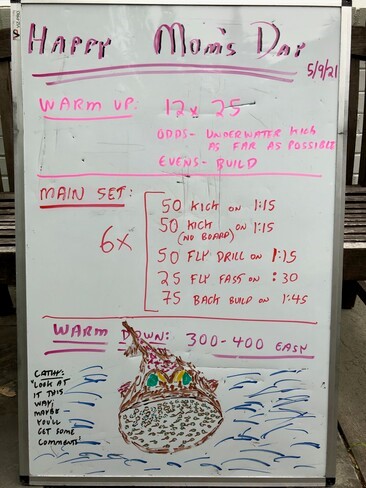 Happy Mom's Day
5/9/21
WARM UP: 12x 25
ODDS- UNDERWATER KICK
AS FAR AS POSSIBLE
EVENS- BUILD
MAIN SET:
6x
50 KICK ON 1:15
50 KICK ON 1:15
(NO BOARD)
50 FLY DRILL ON 1:15
25 FLY FAST ON :30
75 BACK BUILD ON 1:45
WARM DOWN: 300-400 EASY
CATHY:
"LOOK AT
IT THIS
WAY;
MAYBE
YOU'LL
GET SOME
COMMENTS"